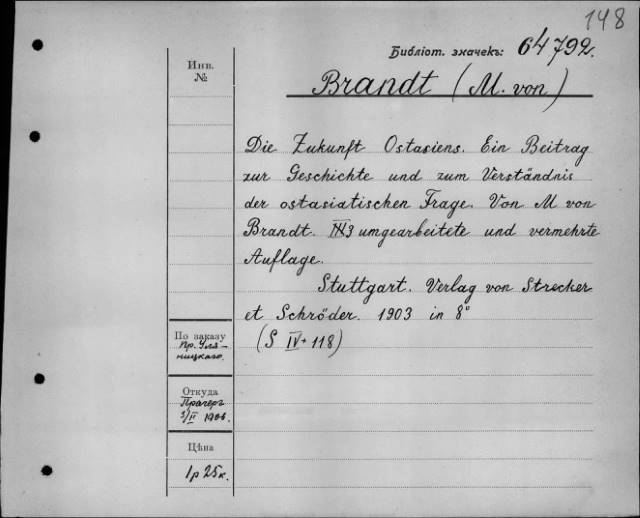 148
Библіот. значекъ: 64792.
Инв.
№
Brandt (M. von)
Die Zukunft Ostasiens. Ein Beitrag
zur Geschichte und zum Verständnis
der ostasiatischen Frage. Von M von
Brandt. umgearbeitete und vermehrte
Auflage.
Stuttgart. Verlag von Strecker
et Schröder. 1903 in 8°
(S IV + 118)
По заказу
Пр. Уля-
ницкаго.
Откуда
Прагеръ
/II 1906.
Цѣна
1 р 25 к.